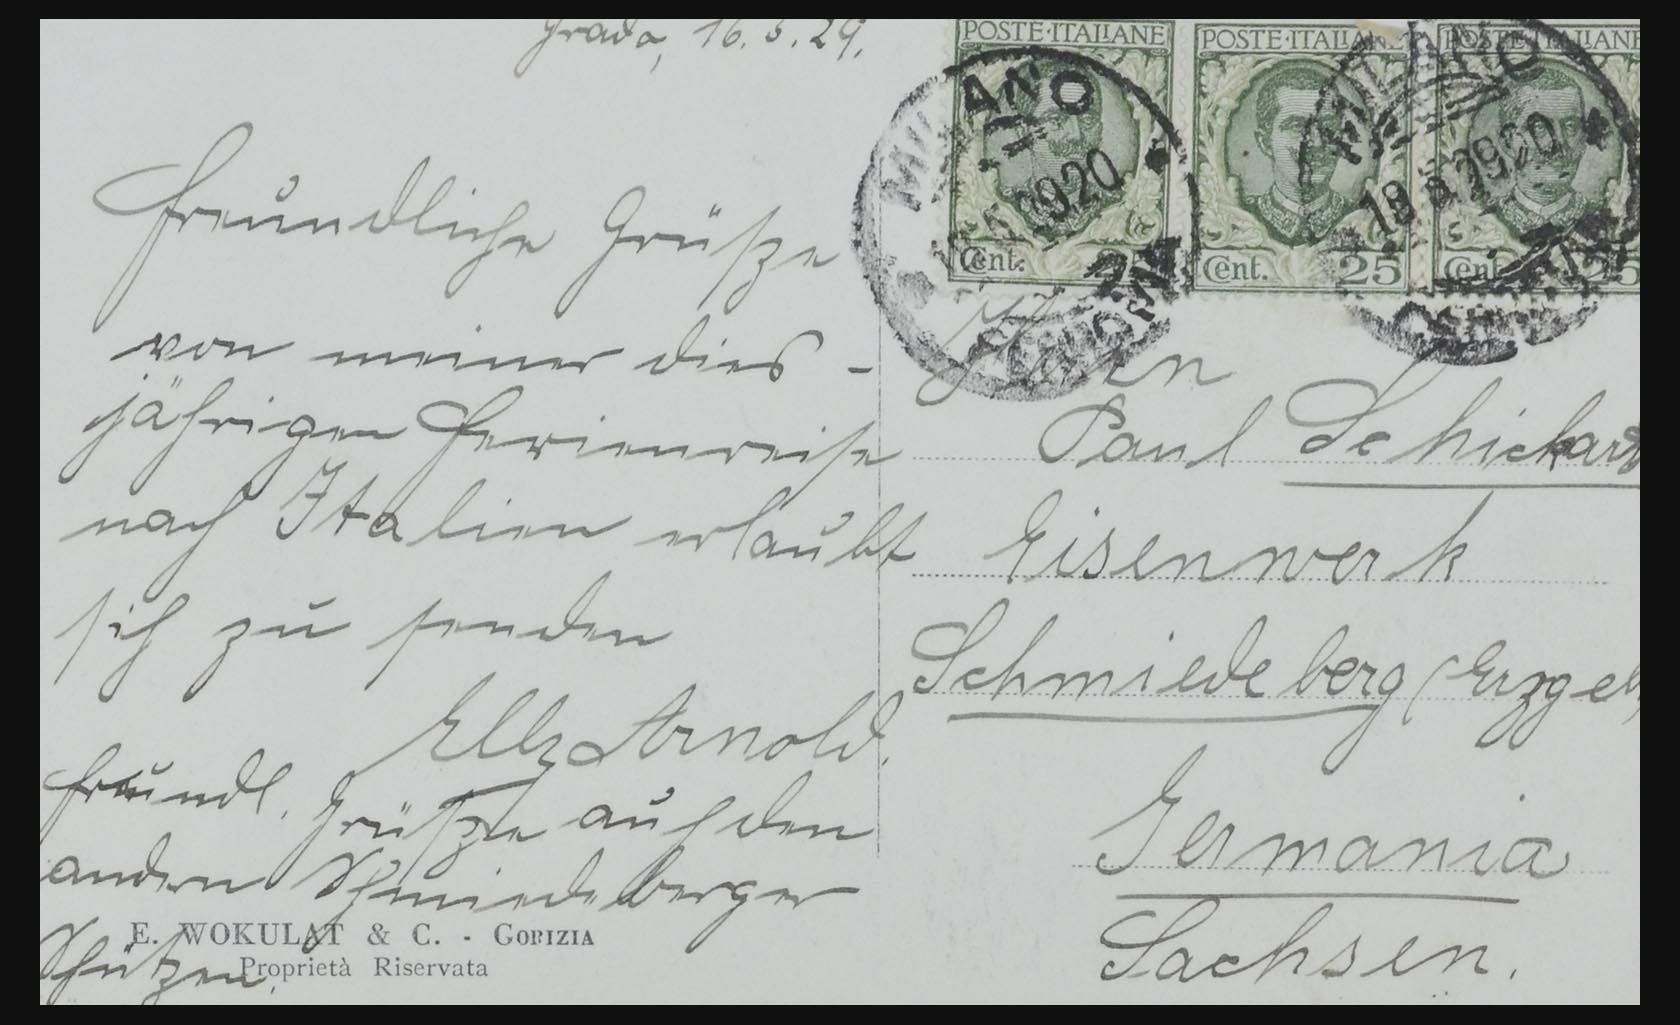 Grado, 16.5.29.
Freundliche Grüße
von meiner dies-
jährigen Ferienreise
nach Italien erlaubt
sich zu senden
Arnold.
freundl. Grüße auch den
andern Schmiedeberger
Schützen.
E. WOKULAT & C. - GORIZIA
Proprietà Riservata
POSTE·ITALIANE
Cent. 25
POSTE·ITALIANE
Cent. 25
POSTE·ITALIANE
Cent. 25
MILANO
MILANO
Herrn
Paul Schickar
Eisenwerk
Schmiedeberg (Erzgeb
Germania
Sachsen.